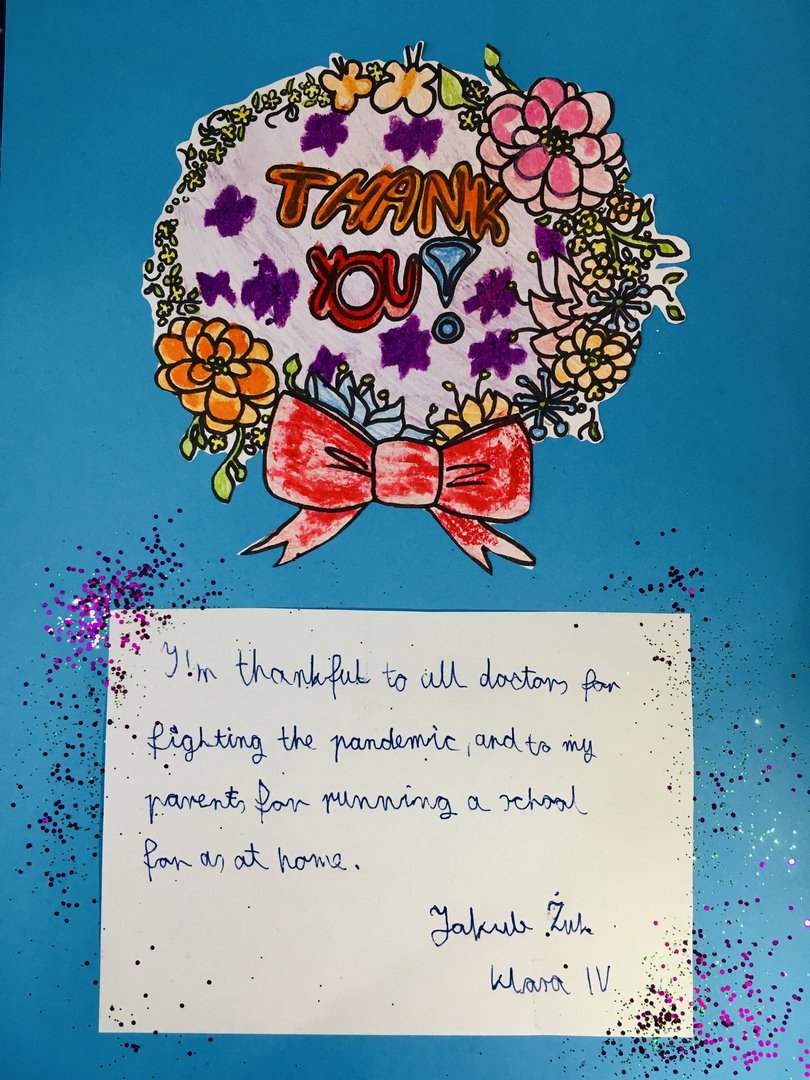 THANK
YOU!
I'm thankful to all doctors for
fighting the pandemic, and to my
parents for running a school
for as at home.
Jakub Żuk
klasa IV